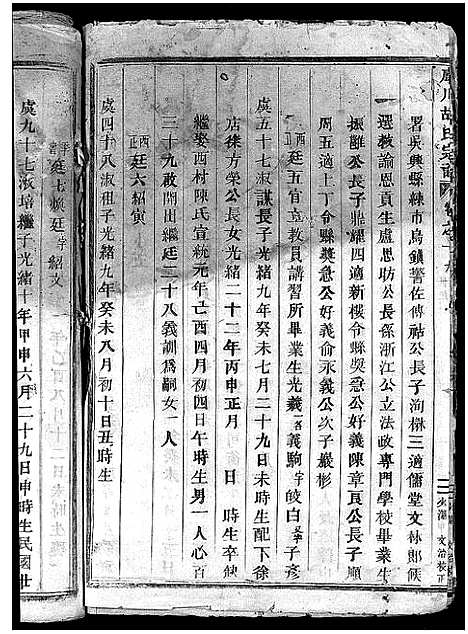 胡氏宗譜
署吳興縣練市烏鎮警佐傅祜公長子洵楙三適儒堂文林郎候
選敎諭恩貢生盧思昉公長孫浙江公立法政專門學校畢業生
振雝公長子鼎耀四適新樓令縣奬急公好義陳章頁公長子順
周五適上丁令縣奬急公好義俞永義公次子嚴彬
虞五十七淑謀長子光緒九年癸未七月二十九日申時生民國
酉五 廷五官敎員講習所畢業生光義 名義駒 字皎白 子彥
店徐方榮公長女光緒二十二年丙申正月 日 時生卒缺
繼娶西村陳氏宣統元年己酉四月初四日午時生男一人心百
三十九啟開出繼廷二十八義訓爲嗣女一人
酉正 廷六紹寅
虞四十八淑祖子光緒九年癸未八月初十日丑時生
廷七煥廷 字紹文
虞九十七淑培繼子光緒十年甲申六月二十九日申時生民國廿
文治校正